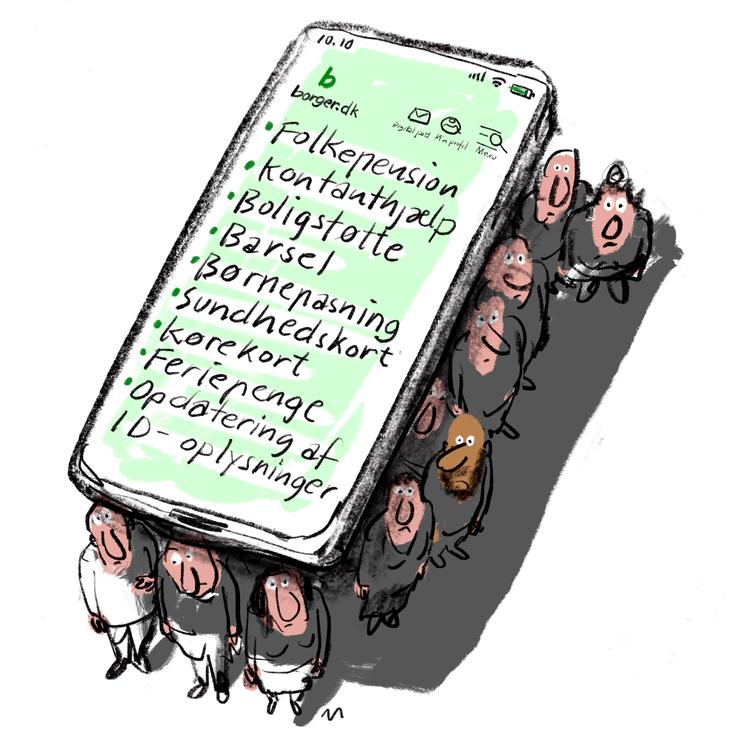 10.10
b
borger.dk
Digital post Min profil Menu
• Folkepension
• Kontanthjælp
• Boligstøtte
• Barsel
• Børnepasning
• Sundhedskort
• Kørekort
• Feriepenge
• Opdatering af
ID-oplysninger